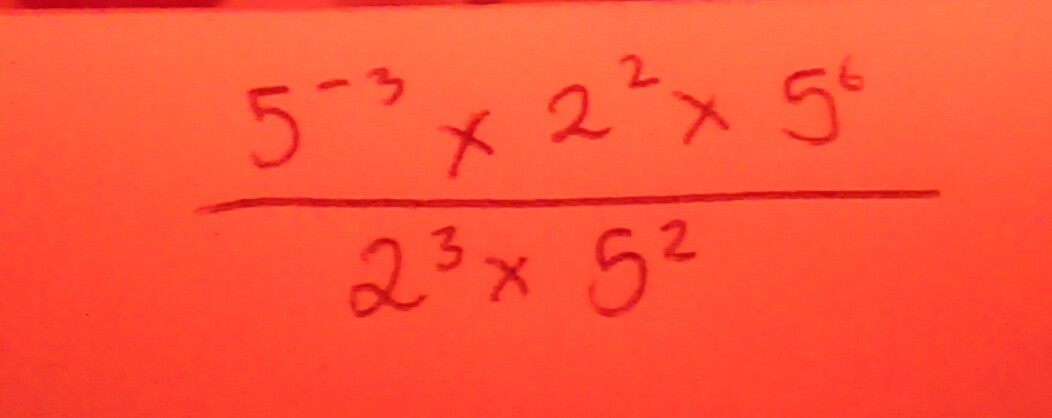 5⁻³ × 2² × 5⁶
2³ × 5²